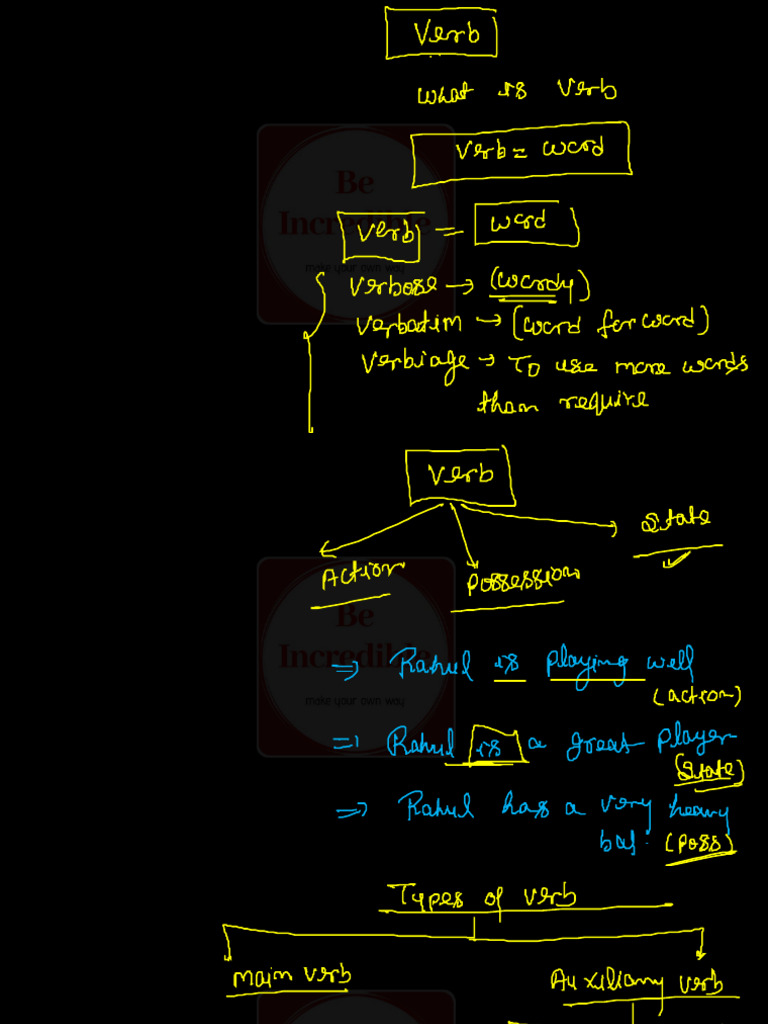 Verb
What is Verb
Verb = Word
Verb = Word
Be
Incredible
make your own way
Verbose → (Wordy)
Verbatim → (Word for word)
Verbiage → To use more words
than require
Verb
State
Action
Possession
Be
Incredible
make your own way
⇒ Rahul is playing well
(action)
⇒ Rahul is a great player
(State)
⇒ Rahul has a very heavy
bat. (Poss)
Types of verb
Main verb Auxiliary verb